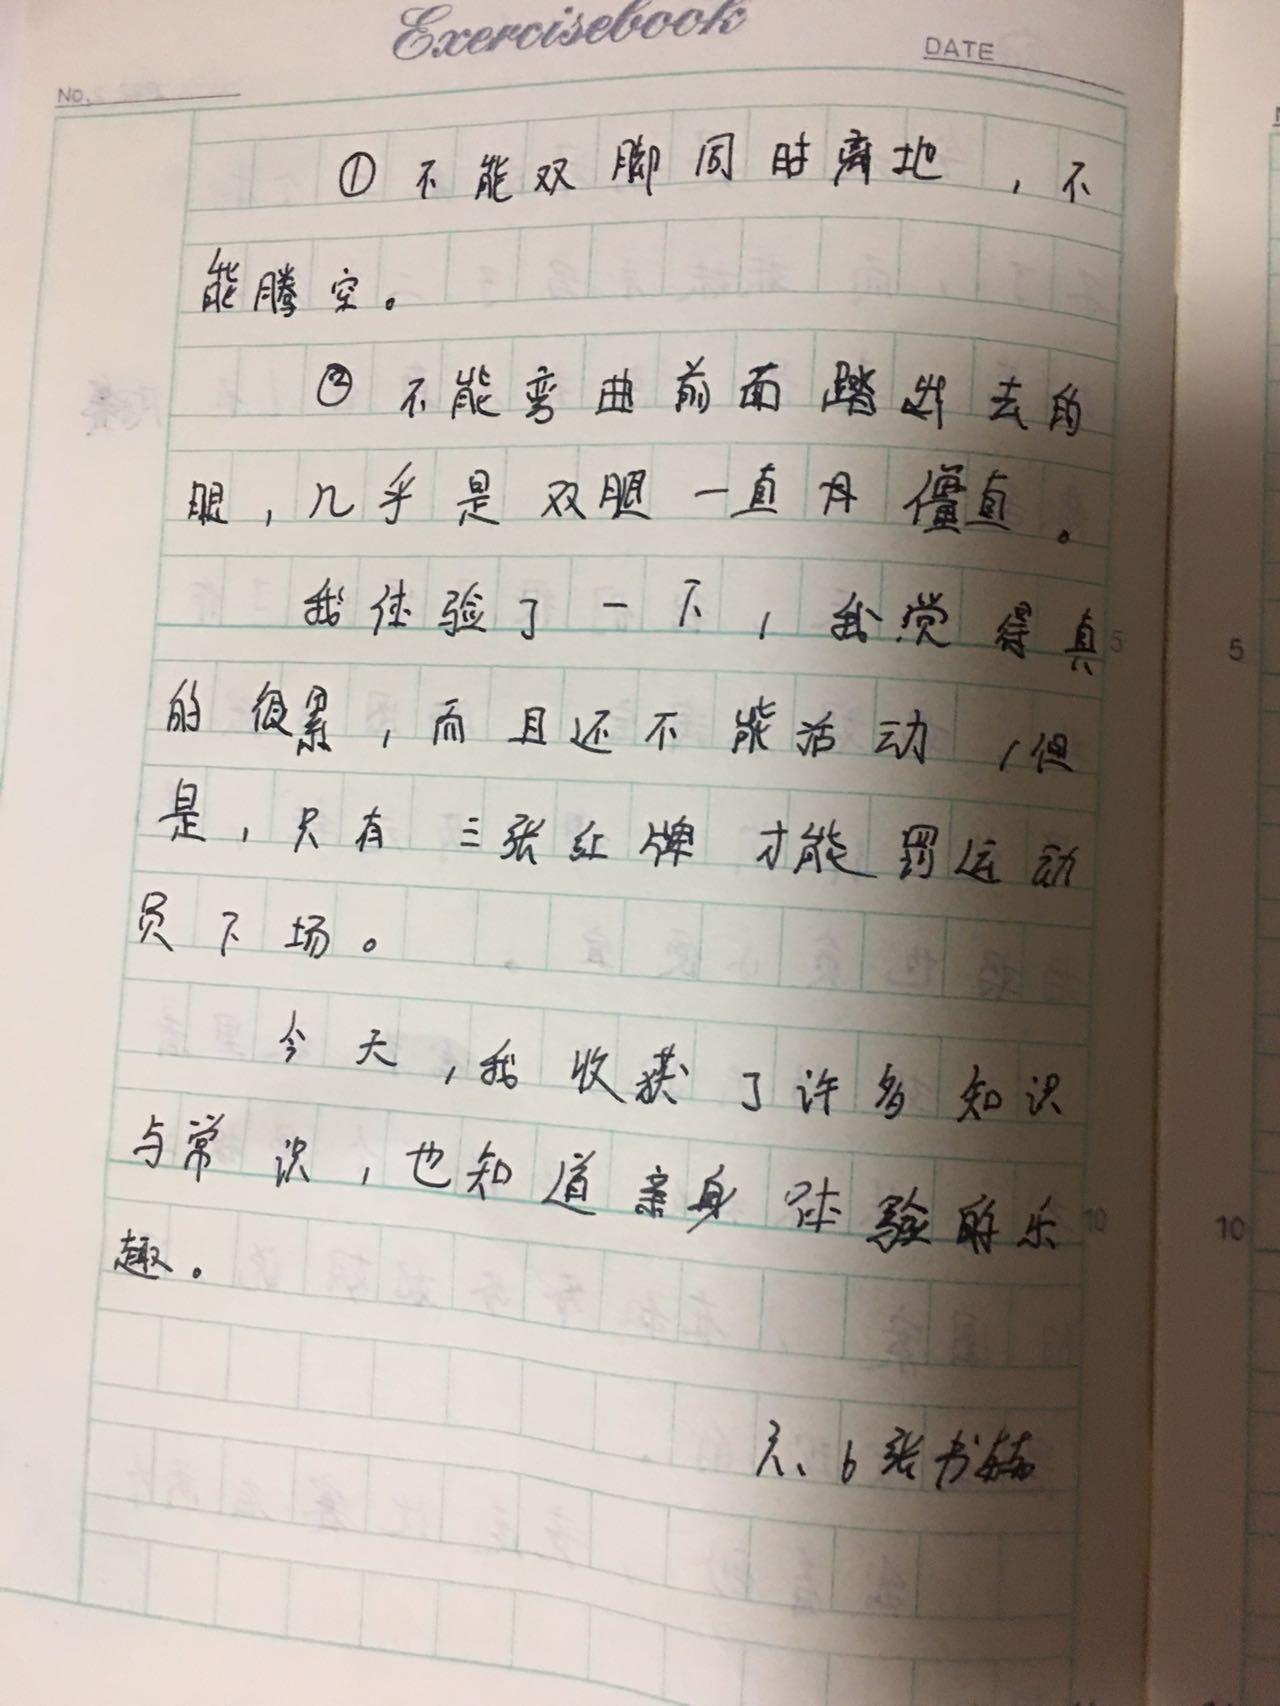 Exercisebook
DATE
NO.
① 不能双脚同时离地，不
能腾空。
② 不能弯曲前面踏出去的
腿，几乎是双腿一直月僵直。
我体验了一下，我觉得真
的很累，而且还不能活动，但
是，只有三张红牌才能罚运动
员下场。
今天，我收获了许多知识
与常识，也知道亲身体验的乐
趣。
六、6 张书
5
10
5
10